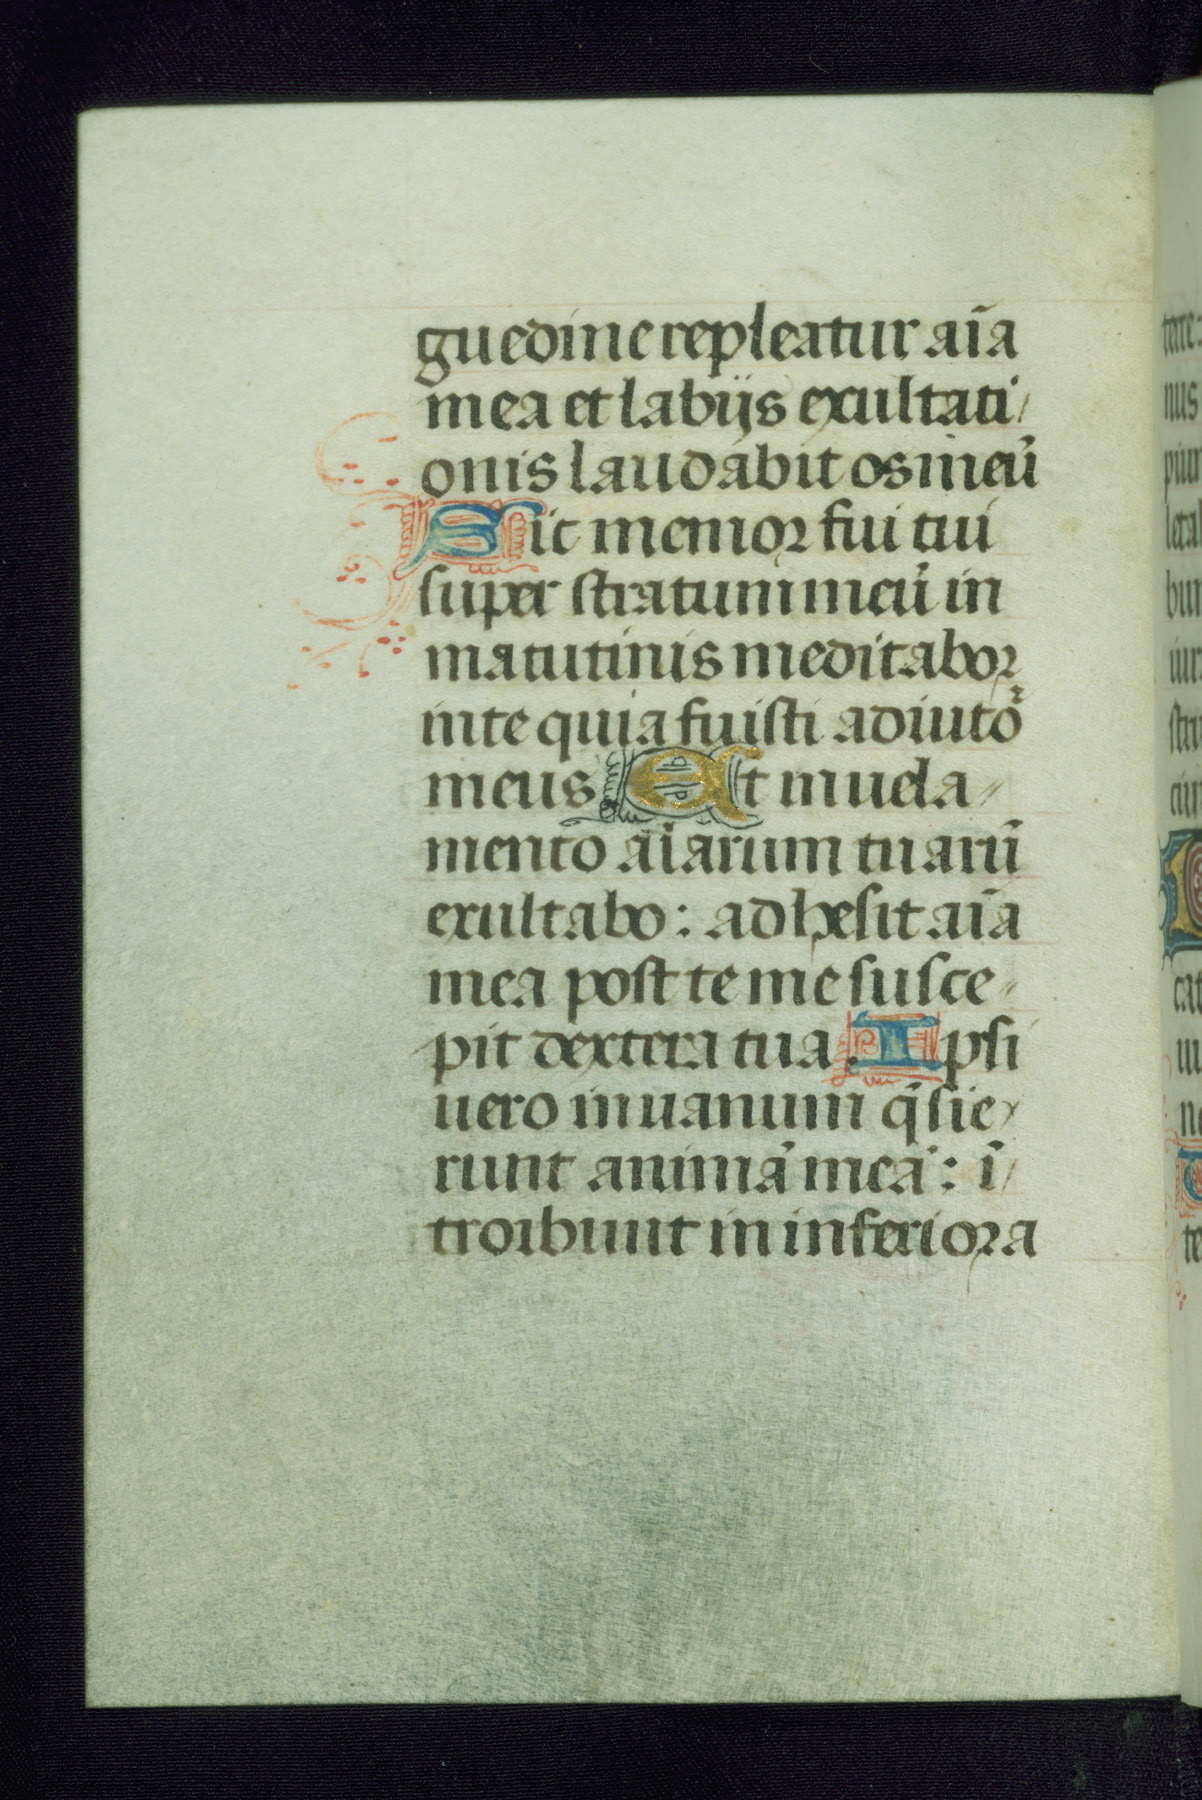 guedine repleatur aīa
mea et labijs exultati/
onis laudabit os meū
Sic memor fui tui
super stratum meū in
matutinis meditabor
in te quia fuisti adiutoͬ
meus Et in uela
mento alarum tuarū
exultabo : adhesit aīa
mea post te me susce
pit dextera tua. Ipsi
uero in uanum q̄sie
runt animā meā : ī/
troibunt in inferiora